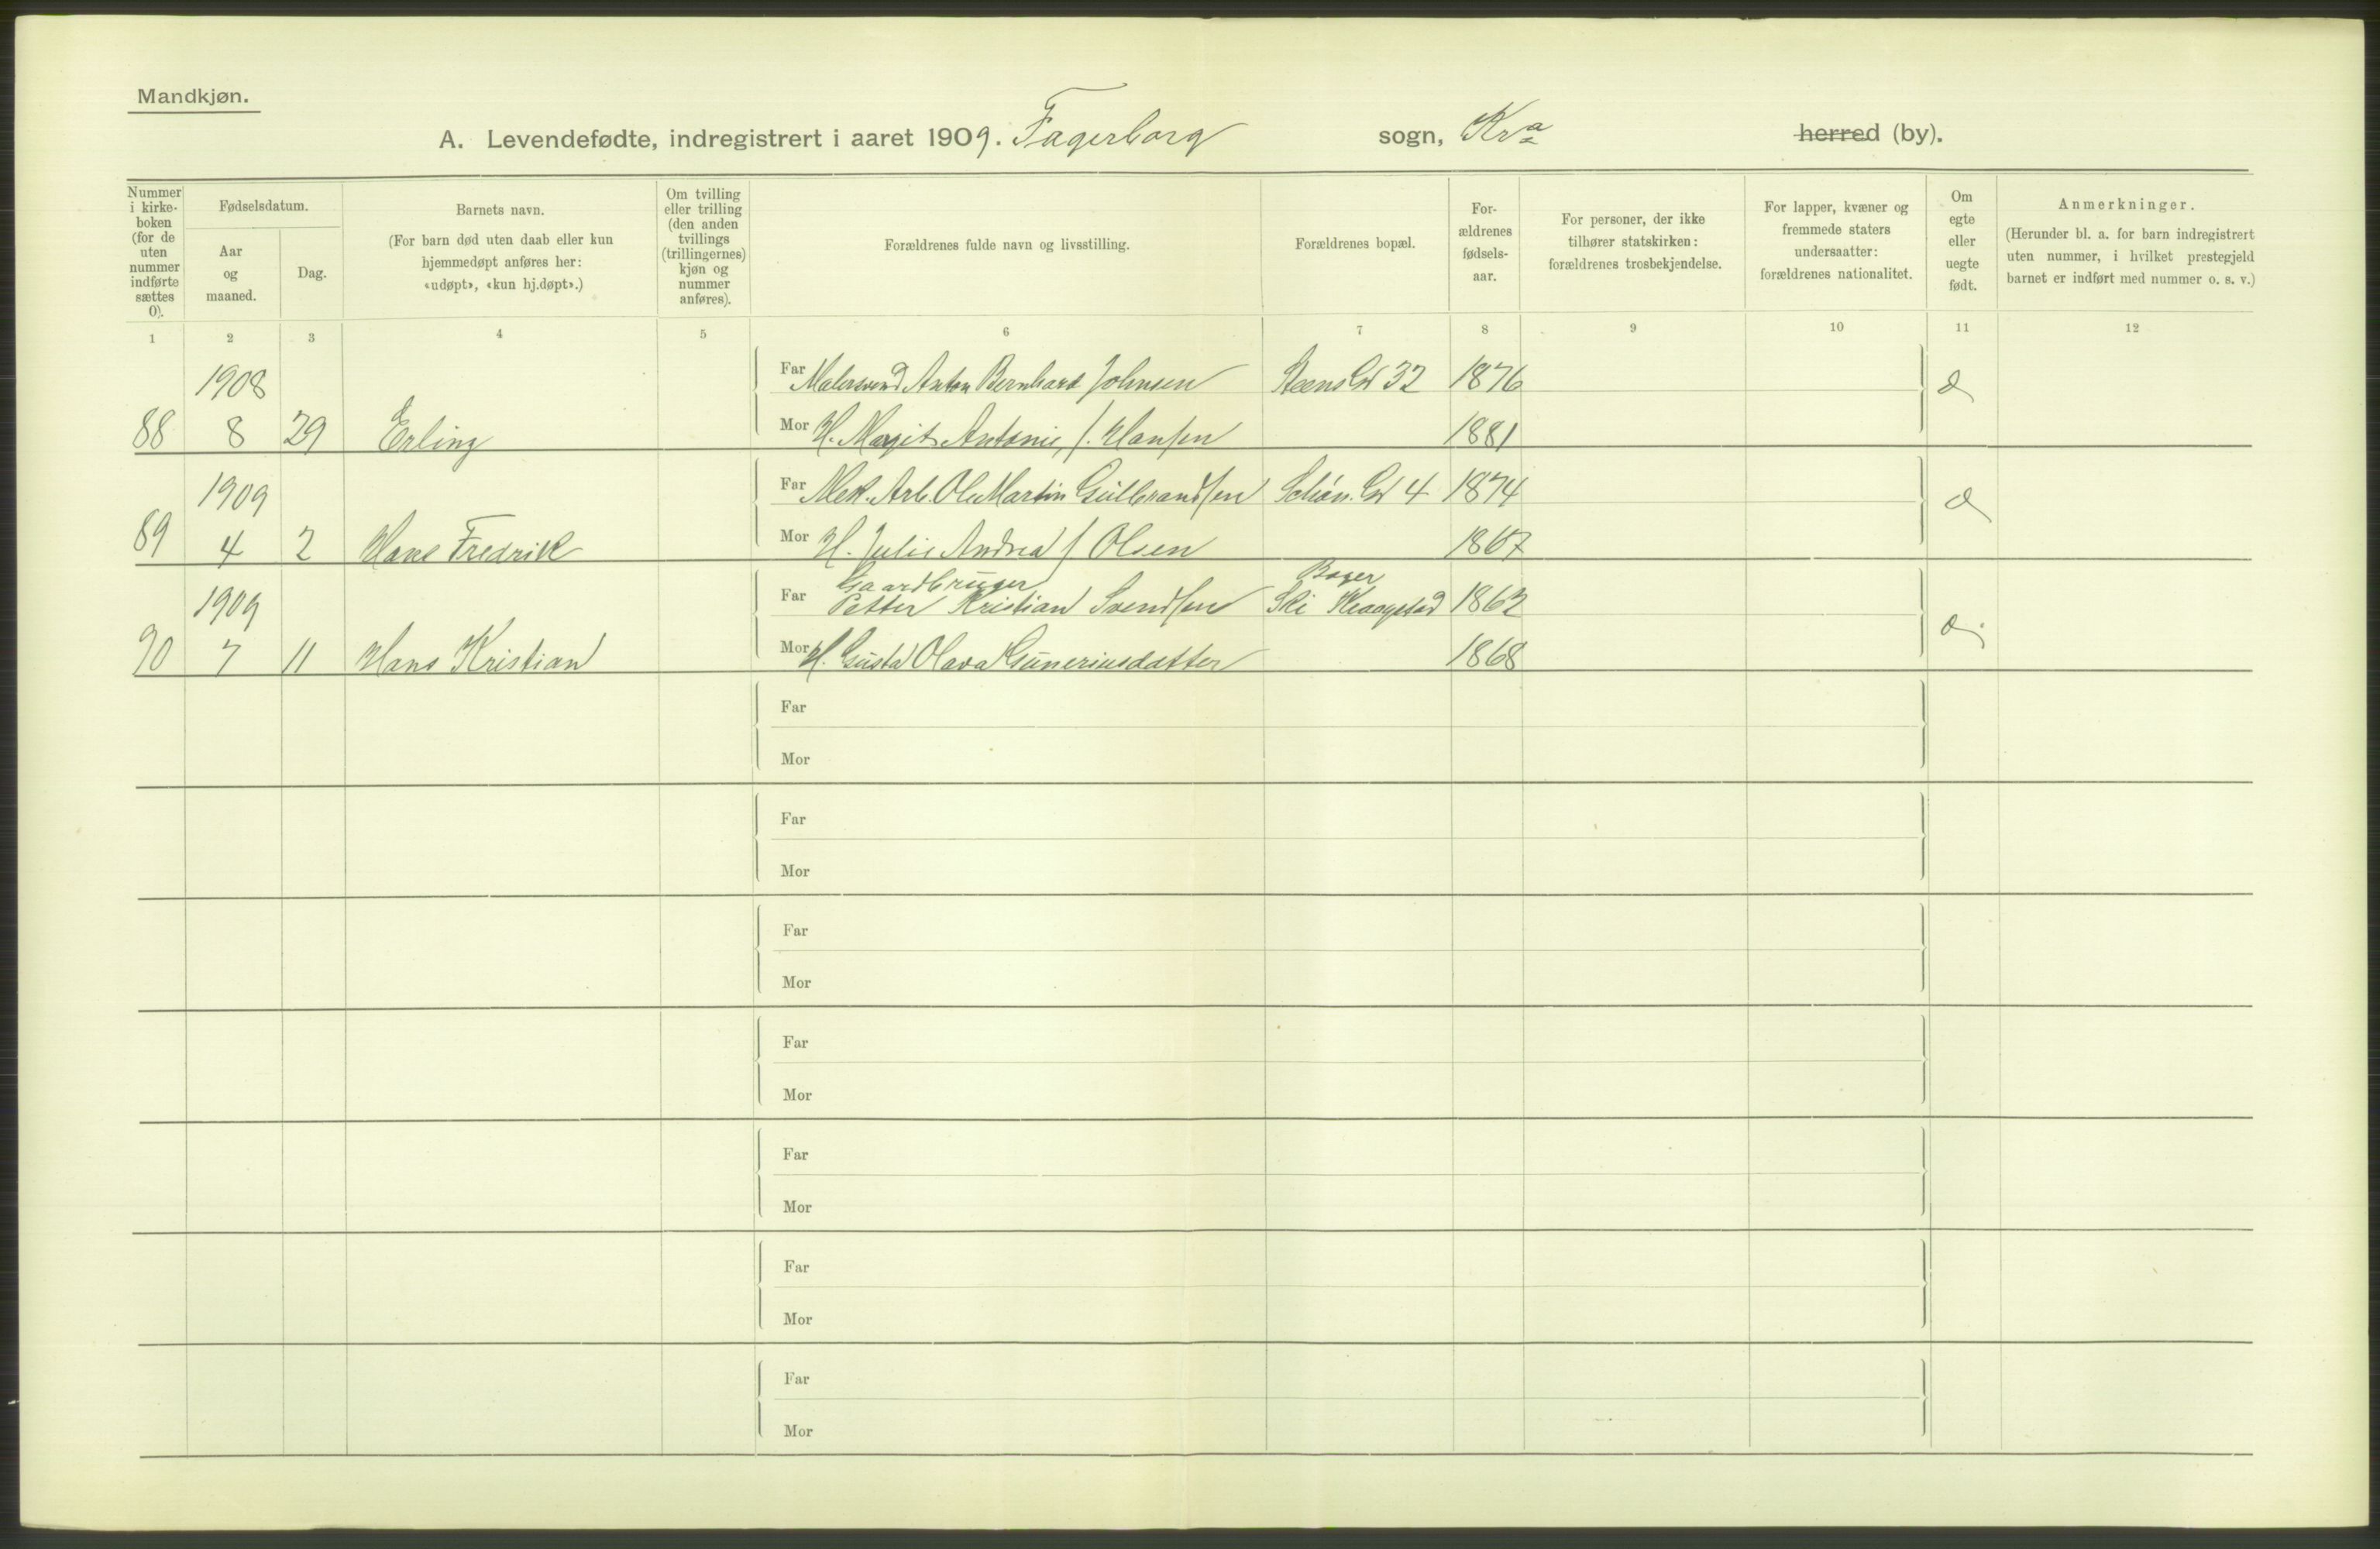 Mandkjøn.
A. Levendefødte, indregistrert i aaret 1909. Fagerborg sogn, Kra herred (by).
Nummer i kirke-boken (for de uten nummer indførte sættes 0).
Fødselsdatum.
Aar og maaned.
Dag.
Barnets navn.
(For barn død uten daab eller kun hjemmedøpt anføres her: «udøpt», «kun hj.døpt».)
Om tvilling eller trilling (den anden tvillings (trillingernes) kjøn og nummer anføres).
Forældrenes fulde navn og livsstilling.
Forældrenes bopæl.
For-ældrenes fødsels-aar.
For personer, der ikke tilhører statskirken: forældrenes trosbekjendelse.
For lapper, kvæner og fremmede staters undersaatter: forældrenes nationalitet.
Om egte eller uegte født.
Anmerkninger.
(Herunder bl. a. for barn indregistrert uten nummer, i hvilket prestegjeld barnet er indført med nummer o. s. v.)
1 2 3 4 5 6 7 8 9 10 11 12
1908 Far Malersvend Anton Bernhard Johnsen Steens Gd 32 1876
88 8 29 Erling Mor H. Margit Antonie f. Hansen 1881
1909 Far Mek. Arb. Ole Martin Gulbrandsen Schøn. Gd 4 1874
89 4 2 Hans Fredrik Mor H. Julie Andrea f Olsen 1867
Gaardbruger
1909 Far Petter Kristian Svendsen Ski Kraagstad 1862
90 7 11 Hans Kristian Mor H. Gusta Olava Guneriusdatter 1868
Far
Mor
Far
Mor
Far
Mor
Far
Mor
Far
Mor
Far
Mor
Far
Mor